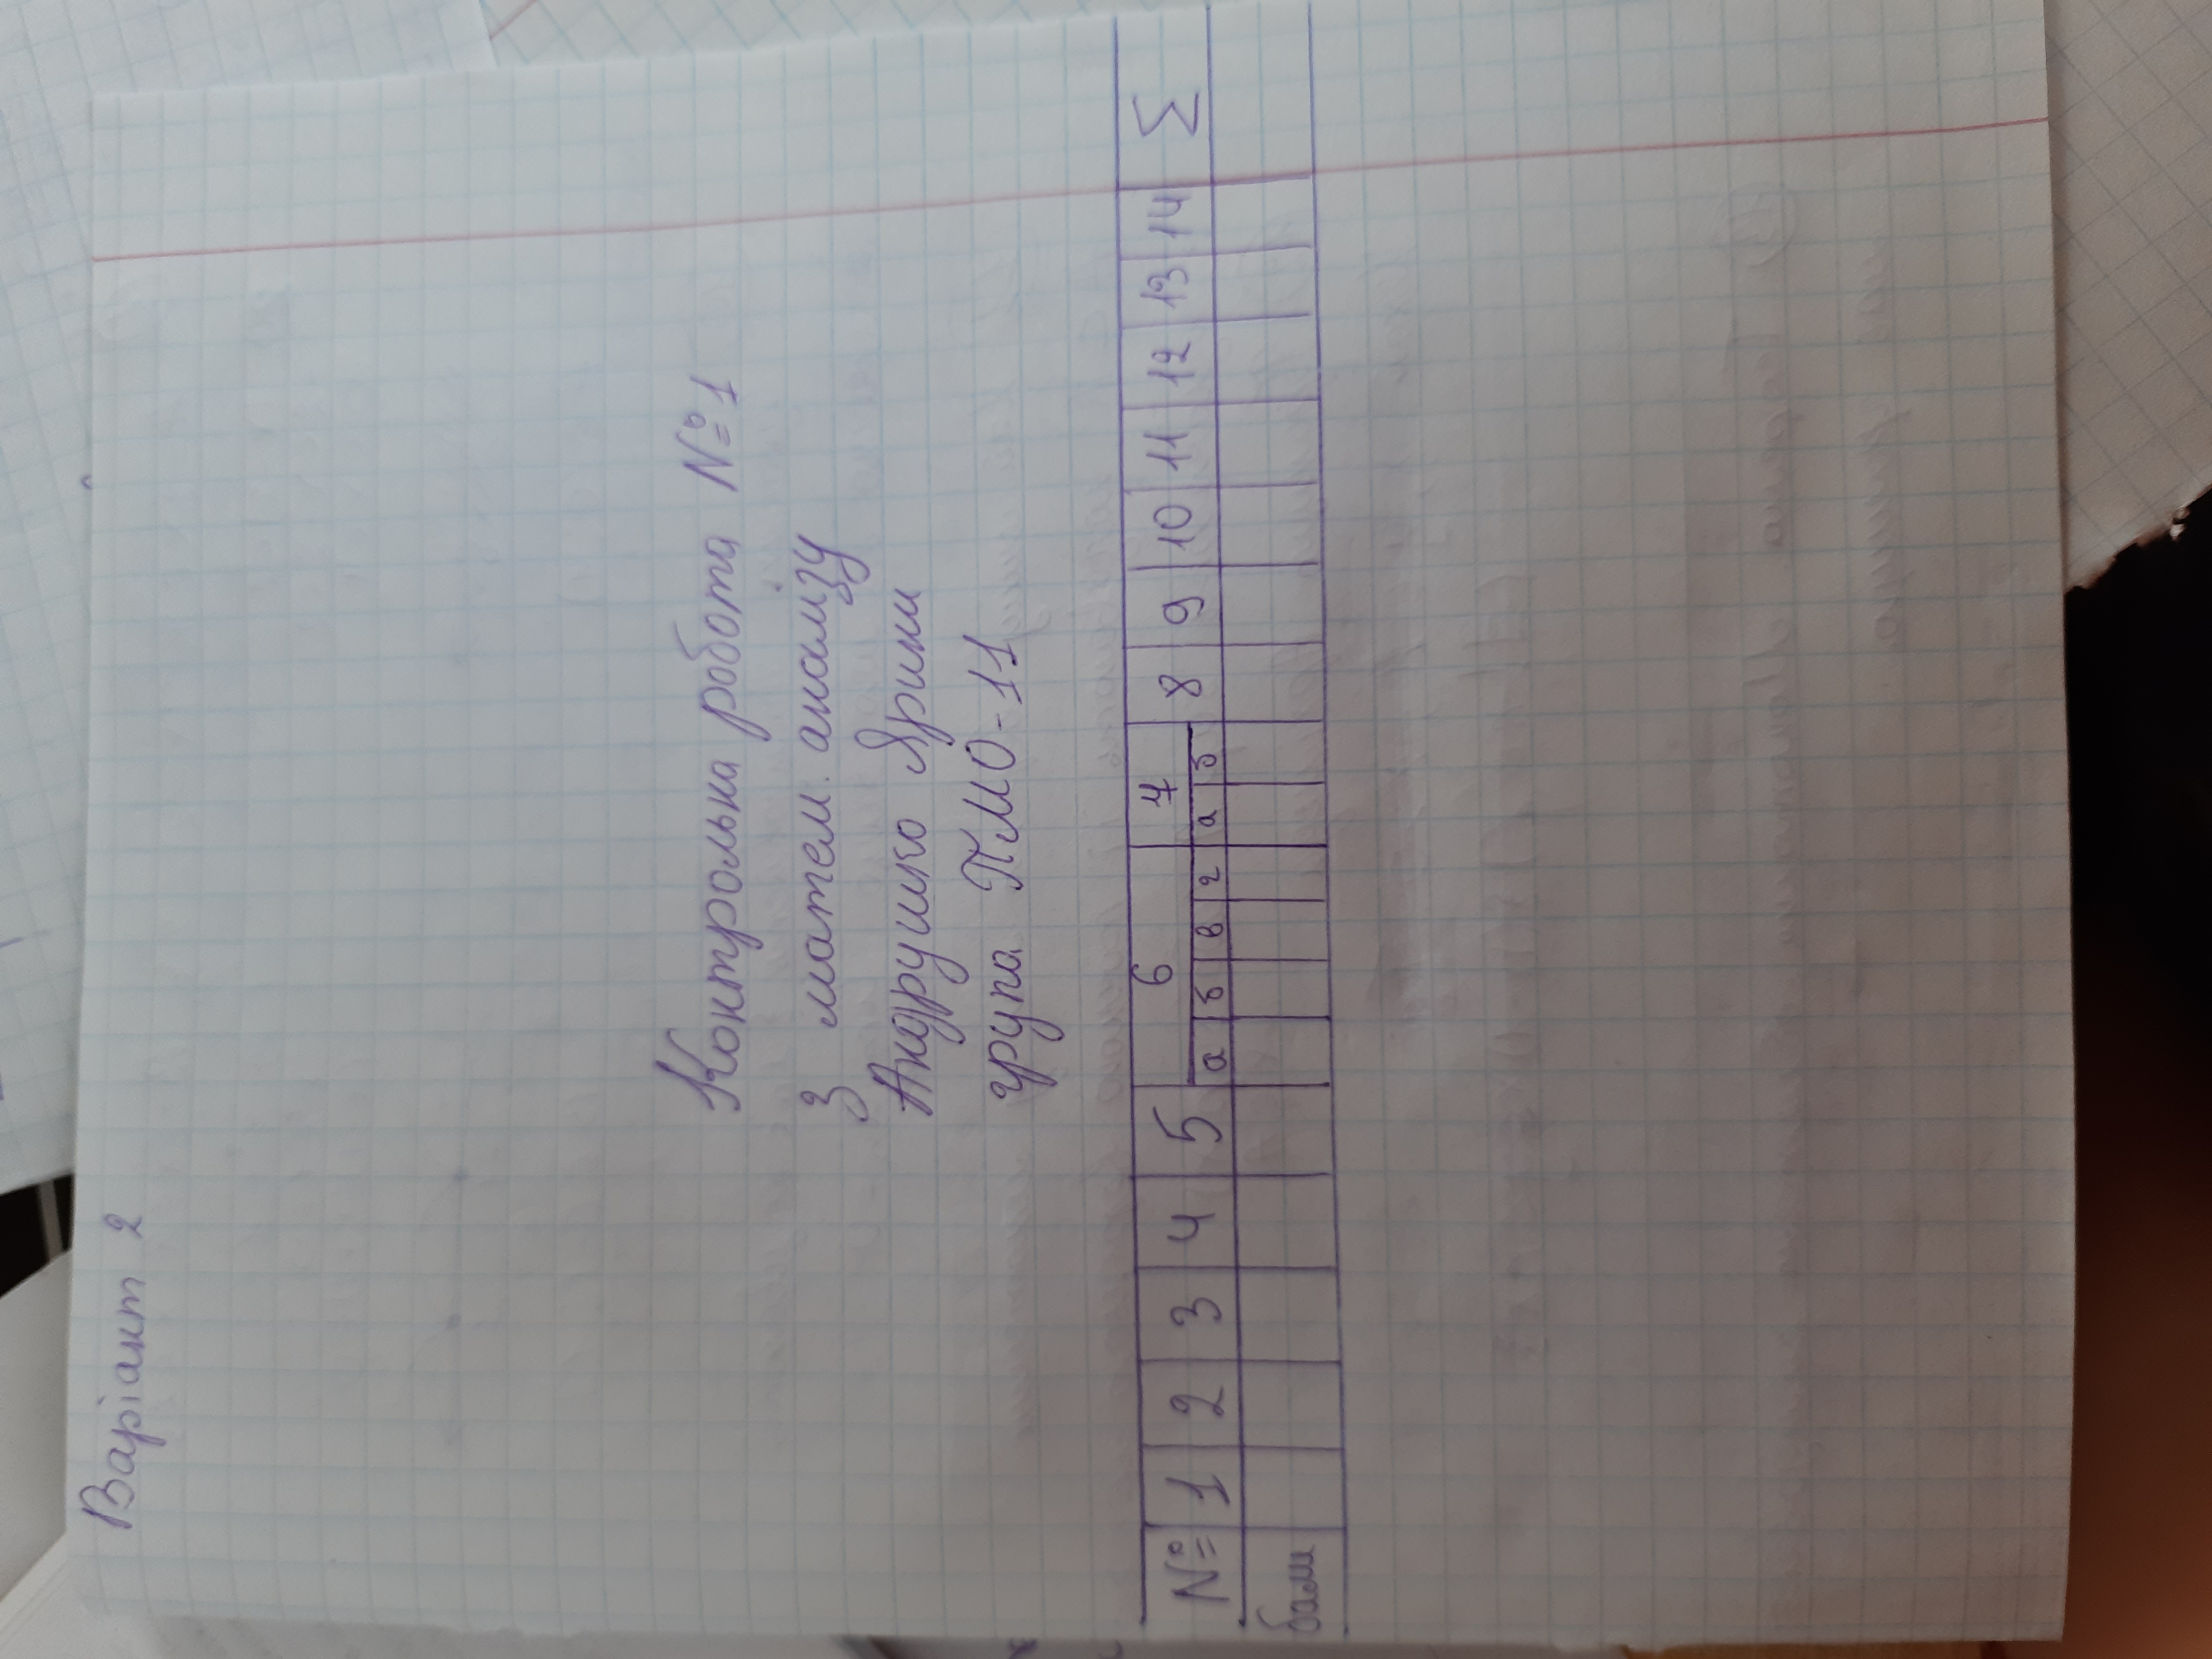 Варіант 2
Контрольна робота №1
з матем. аналізу
Андрушко Ярини
група ПМО-11
№ 1 2 3 4 5 6 7 8 9 10 11 12 13 14 Σ
а б в г а б
бали